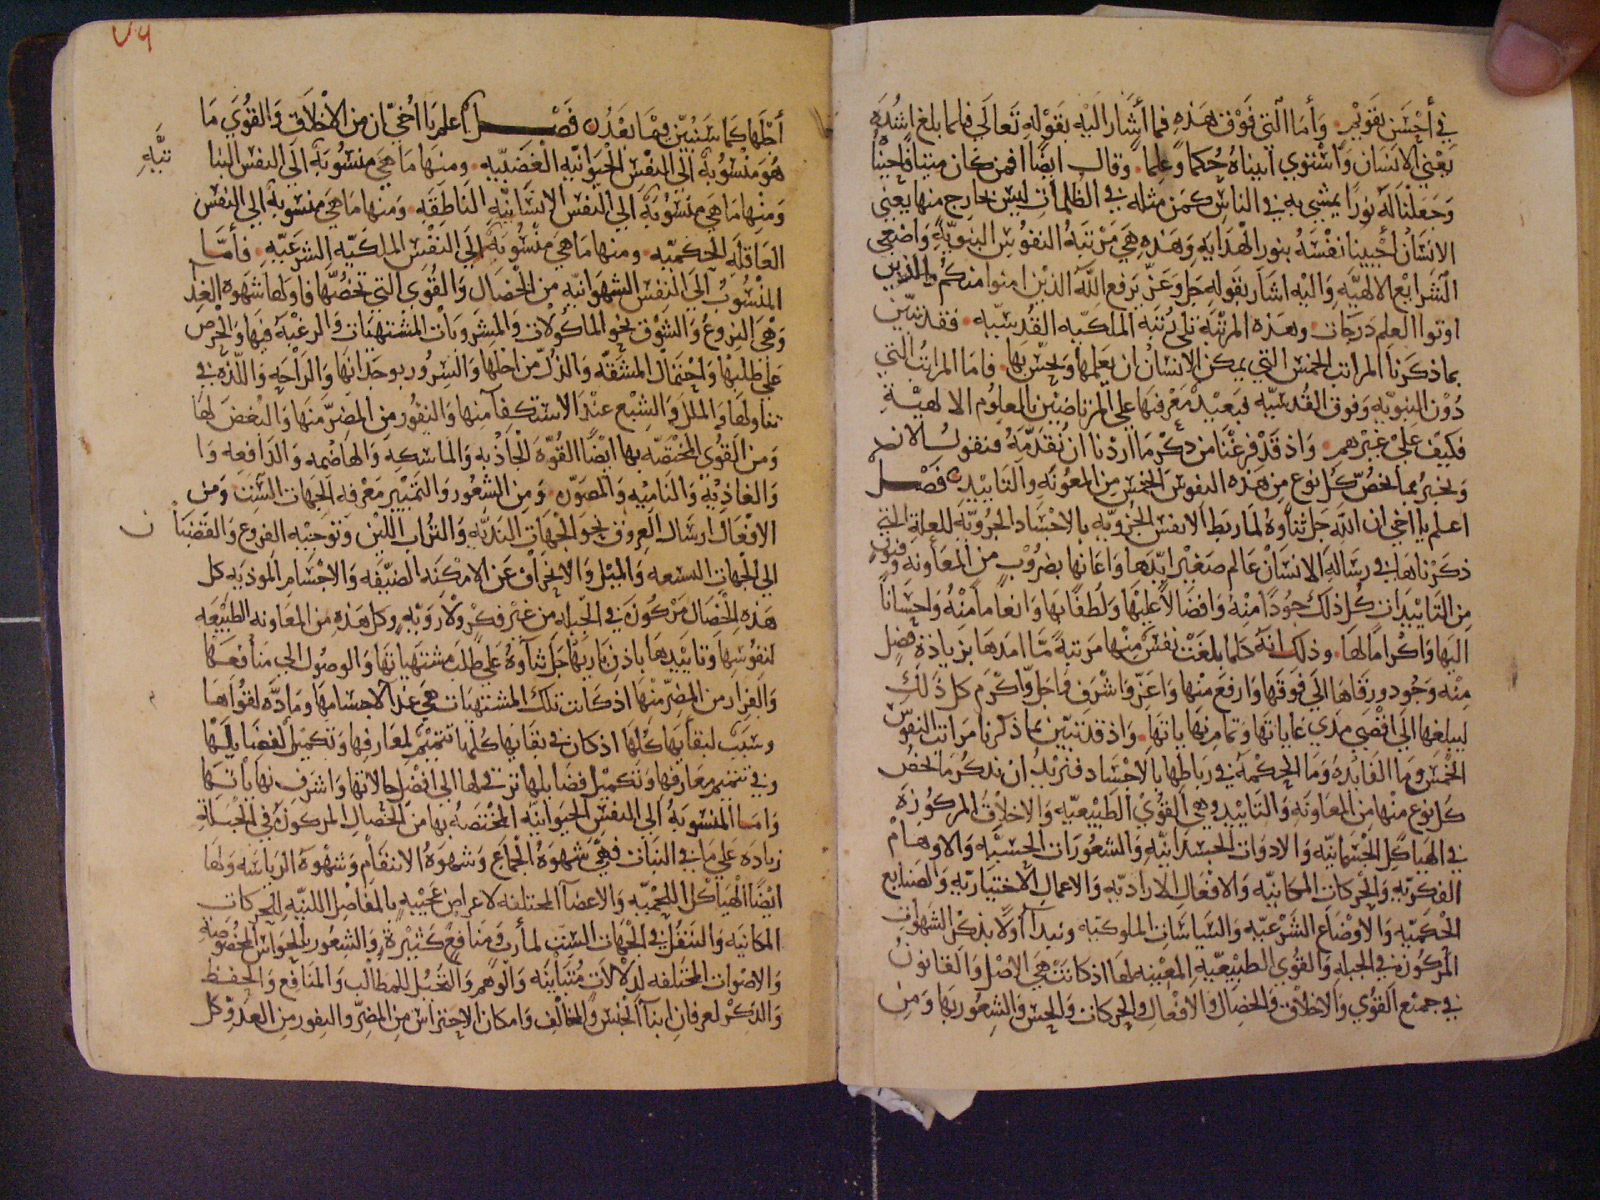 في أحسن تقويم وأما التي فوق هذه فما أشار اليه بقوله تعالى فلما بلغ اشده
يعني الانسان واستوى آتيناه حكما وعلما وقال ايضا أفمن كان ميتا فاحييناه
وجعلنا له نورا يمشي به في الناس كمن مثله في الظلمات ليس بخارج منها يعني
الانسان أحيينا نفسه بنور الهداية وهذه هي مرتبة النفوس النبوية واضعي
الشرايع الالهية واليه اشار بقوله جل وعز يرفع الله الذين امنوا منكم والذين
اوتوا العلم درجات وهذه المرتبة تلي رتبة الملكيه القدسيه فقد تبين
بما ذكرنا المراتب الخمس التي يمكن الانسان ان يعلمها ويحس بها فاما المراتب التي
دون النبويه وفوق القدسيه فبعيد معرفتها على المرتاضين بالعلوم الالهية
فكيف على غيرهم واذ قد فرغنا من ذكر ما أردنا ان نقدمه فنقول الان
ونخبر بما يخص كل نوع من هذه النفوس الخمس من المعونه والتاييد فصل
اعلم يا اخي ان الله جل ثناوه لما ربط الانفس الجزويه بالاجساد الجزويه للعلة التي
ذكرناها في رساله الانسان عالم صغير ايدها واعانها بضروب من المعاونه وفنون
من التاييدات كل ذلك جودا منه وافضالا عليها ولطفا بها وانعاما منه واحسانا
اليها واكراما لها وذلك انه كلما بلغت نفس منها مرتبة ما امدها بزيادة فضل
منه وجود ورقاها الى فوقها وارفع منها واعز واشرف واجل واكرم كل ذلك
ليبلغها الى اقصى مدي غاياتها وتمام نهاياتها واذ قد تبين بما ذكرنا مراتب النفوس
الخمس وما الفايده وما الحكمة في رباطها بالاجساد فنريد ان نذكر ما يخص
كل نوع منها من المعاونة والتاييد وهي القوى الطبيعيه والاخلاق المركوزة
في الهياكل الجسمانيه والادوات الجسدانيه والشعورات الحسيه والاوهام
الفكريه والحركات المكانيه والافعال الاراديه والاعمال الاختياريه والصنايع
الحكميه والاوضاع الشرعيه والسياسات الملوكيه ونبدأ أولا بذكر الشهوات
المركوزه في الجبله والقوى الطبيعيه المعينه لها اذ كانت هي الاصل والقانون
في جميع القوى والاخلاق والخصال والافعال والحركات والحس والشعور بها ومن
٧٩
أجلها كما سنبين فيما بعد فصل اعلم يا اخي ان من الاخلاق والقوى ما
هو منسوبة الى النفس الحيوانيه الغضبيه ومنها ما هي منسوبة الى النفس النبا
تيه
ومنها ما هي منسوبة الى النفس الانسانيه الناطقه ومنها ما هي منسوبة الى النفس
العاقلة الحكميه ومنها ما هي منسوبة الى النفس الملكيه الشرعيه فأما
المنسوب الى النفس الشهوانيه من الخصال والقوى التي تخصها فاولها شهوة الغذ
وهي النزوع والشوق نحو الماكولات والمشروبات المشتهيات والرغبة فيها والحرص
على طلبها واحتمال المشقة والذل من اجلها والسرور بوجدانها والراحة واللذه في
تناولها والملل والشبع عند الاستكفا منها والنفور من المضر منها والبغض لها
ومن القوى المختصه بها ايضا القوة الجاذبه والماسكه والهاضمه والدافعه وا
والغاذيه والناميه والمصوره ومن الشعور والتمييز معرفه الجهات الست ومن
الافعال ارسال العروق نحو الجهات النديه والتراب اللين وتوجيه الفروع والقضبا ن
الى الجهات المتسعه والميل والانحراف عن الامكنه الضيقه والاجسام الموذيه كل
هذه الخصال مركوزة في الجبله من غير فكر ولا رويه وكل هذه من المعاونه الطبيعه
لنفوسها وتاييدها باذن باريها جل ثناوه على طلب مشتهياتها والوصول الى منافعها
والفرار من المضر منها اذ كانت تلك المشتهيات هي غذا لاجسامها ومادة لقواها
وسبب لبقايها كلها اذ كان في بقايها كلها تتميم لمعارفها وتكميل لفضايلها
وفي تتميم معارفها وتكميل فضايلها ترق لها الى افضل حالاتها واشرف نهاياتها
واما المنسوبة الى النفس الحيوانيه المختصه بها من الخصال المركوزة في الجبلة
زيادة على ما في النبات فهي شهوة الجماع وشهوة الانتقام وشهوة الرياسه ولها
ايضا الهياكل اللحميه والاعضآ المختلفه لاعراض عجيبه بالمفاصل اللينه للحركات
المكانيه والتنقل في الجهات الست لمأرب ومنافع كثيرة والشعور بالحواس المخصوصة
والاصوات المختلفه لدلالات متباينه والوهم والتخيل للمطالب والمنافع والحفظ
والذكر لعرفان ابنآ الجنس والمخالف وامكان الاحتراس من المضر والنفور من العدو كل